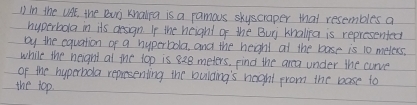 1) In the UAE, the Burj Khalifa is a famous skyscraper that resembles a
hyperbola in its design. If the height of the Burj Khalifa is represented
by the equation of a hyperbola, and the height at the base is 10 meters,
while the height at the top is 828 meters, find the area under the curve
of the hyperbola representing the building's height from the base to
the top.